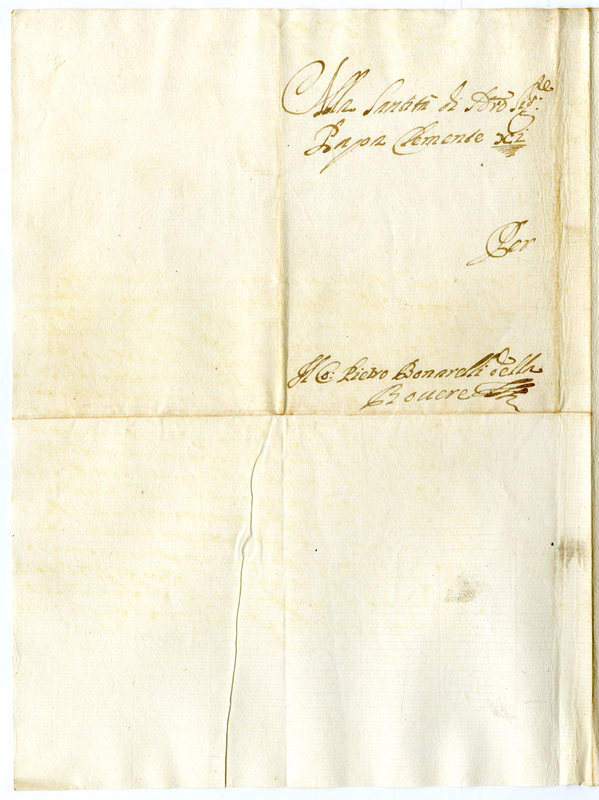 Alla Santità di Nro Sigre
Papa Clemente XI
Per
Il Co: Pietro Bonarelli della
Rovere